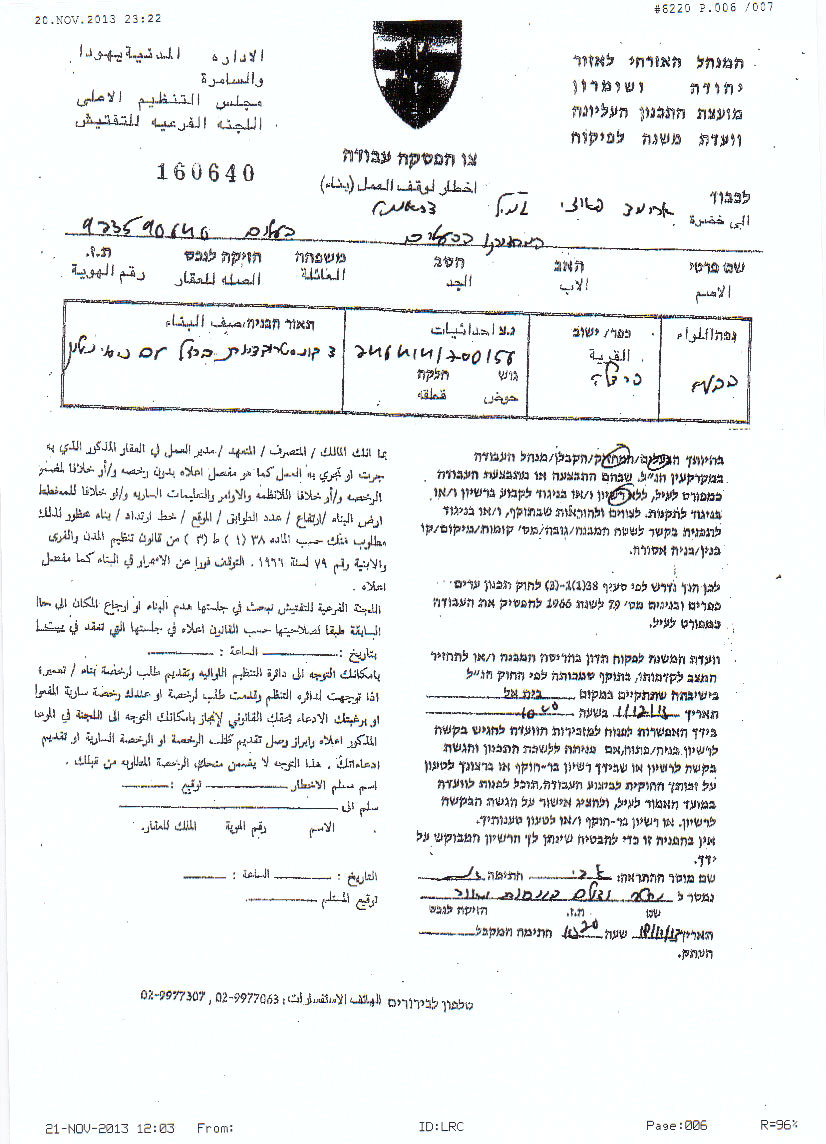 20.NOV.2013 23:22
#6220 P.006 /007
המנהל האזרחי לאזור
יהודה ושומרון
מועצת התכנון העליונה
וועדת משנה לפיקוח
الاداره المدنية يهودا
والسامرة
مجلس التنظيم الاعلى
اللجنه الفرعيه للتفتيش
160640
צו הפסקה עבודה
اخطار لوقف العمل (بناء)
לכבוד
الى حضرة
שם פרטי האב הסב משפחה הזיקה לנכס ת.ז.
الاسم الاب الجد العائلة الصله للعقار رقم الهوية
נפה/اللواء כפר/ישוב القرية נ.צ احداثيات תאור הבניה/صيف البناء
גוש חלקה
حوض قطعه
בהיותך הבעלים/המחזיק/הקבלן/מנהל העבודה
במקרקעין הנ"ל, שבהם התבצעה או מתבצעת העבודה
כמפורט לעיל, ללא רשיון ו/או בניגוד לקבוע ברשיון ו/או
בניגוד לתקנות, לצווים ולהוראות שבתוקף, ו/או בניגוד
לתכנית בקשר לשטח המבנה/גובה/מס' קומות/מיקום/קו
בנין/בניה אסורה.
לכן הנך נדרש לפי סעיף 38(1)-(2) לחוק תכנון ערים
כפרים ובנינים מס' 79 לשנת 1966 להפסיק את העבודה
כמפורט לעיל.
וועדת המשנה לפקוח תדון בהריסת המבנה ו/או להחזיר
המצב לקדמותו, בתוקף סמכותה לפי החוק הנ"ל
בישיבתה שתתקיים במקום בית אל
תאריך 11/12/13 בשעה 10:00
בידך האפשרות לפנות למזכירות הוועדה להגיש בקשה
לרשיון בניה/פתוח, אם פניתה ללשכת התכנון והגשת
בקשה לרשיון או שבידך רשיון בר-תוקף או ברצונך לטעון
על זכותך החוקית לביצוע העבודה, תוכל לפנות לוועדה
במועד האמור לעיל, ולהציג אישור על הגשת הבקשה
לרשיון, או רשיון בר-תוקף ו/או לטעון טענותיך.
אין בהפניה זו כדי להבטיח שינתן לך הרשיון המבוקש על
ידך.
שם מוסר ההתראה: חתימה
נמסר ל
שם ת.ז. הזיקה לנכס
תאריך שעה חתימת המקבל
העתק.
بما انك المالك / المتصرف / المتعهد / مدير العمل في العقار المذكور الذي به
جرت او تجري به العمل كما هو مفصل اعلاه بدون رخصه و/أو خلافا
الرخصه و/أو خلافا للانظمه والاوامر والتعليمات الساريه و/او خلافا للمخطط
ارض البناء /ارتفاع / عدد الطوابق / الموقع / خط ارتداد / بناء محظور لذلك
مطلوب منك حسب الماده ٣٨ (١) ط (٣) من قانون تنظيم المدن والقرى
والابنية رقم ٧٩ لسنة ١٩٦٦. التوقف فورا عن الاستمرار في البناء كما مفصل
اعلاه.
اللجنة الفرعية للتفتيش تبحث في جلستها هدم البناء او ارجاع المكان الى
السابقة طبقا لصلاحيتها حسب القانون اعلاه في جلستها التي تعقد في
بتاريخ: الساعة:
بامكانك التوجه الى دائرة التنظيم اللوائيه وتقديم طلب لرخصة بناء / تعمير؛
اذا توجهت لدائره التنظيم وقدمت طلب لرخصة او عندك رخصة سارية المفعول
او برغبتك الادعاء بحقك القانوني لإنجاز بامكانك التوجه الى اللجنة في
المذكور اعلاه وابراز وصل تقديم طلب الرخصة او الرخصة السارية او تقديم
ادعاءاتك. هذا التوجه لا يضمن منحك الرخصة المطلوبه من قبلك.
اسم مسلم الاخطار توقيع:
سلم الى
الاسم رقم الهوية المالك للعقار.
التاريخ: الساعة:
توقيع المستلم
טלפון לבירורים الهاتف الاستفسارات: 02-9977063, 02-9977307
21-NOV-2013 12:03 From: ID:LRC Page:006 R=96%